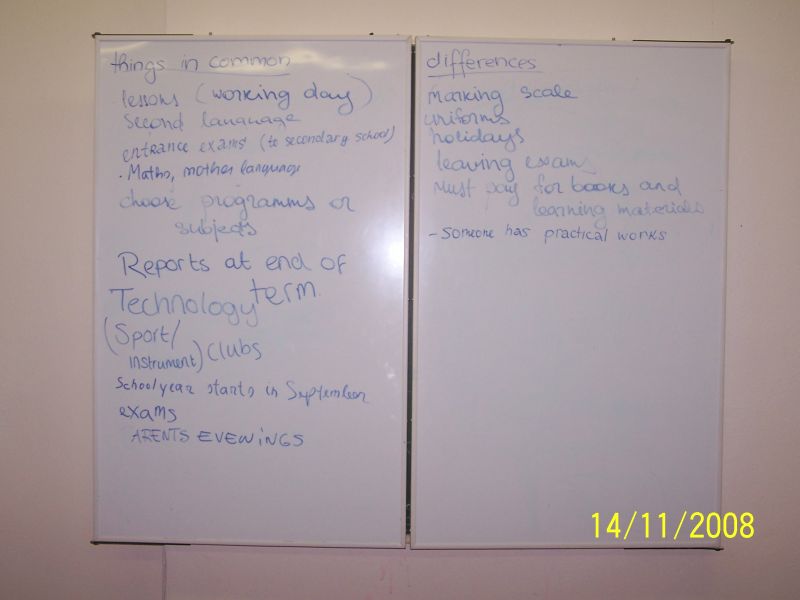 things in common
lessons (working day)
second language
entrance exams (to secondary school)
· Maths, mother language
choose programms or
subjects
Reports at end of
term
Technology
(Sport/
instrument) clubs
School year starts in September
exams
ARENTS EVEWINGS
differences
marking scale
uniforms
holidays
leaving exams
Must pay for books and
learning materials
- Someone has practical works
14/11/2008